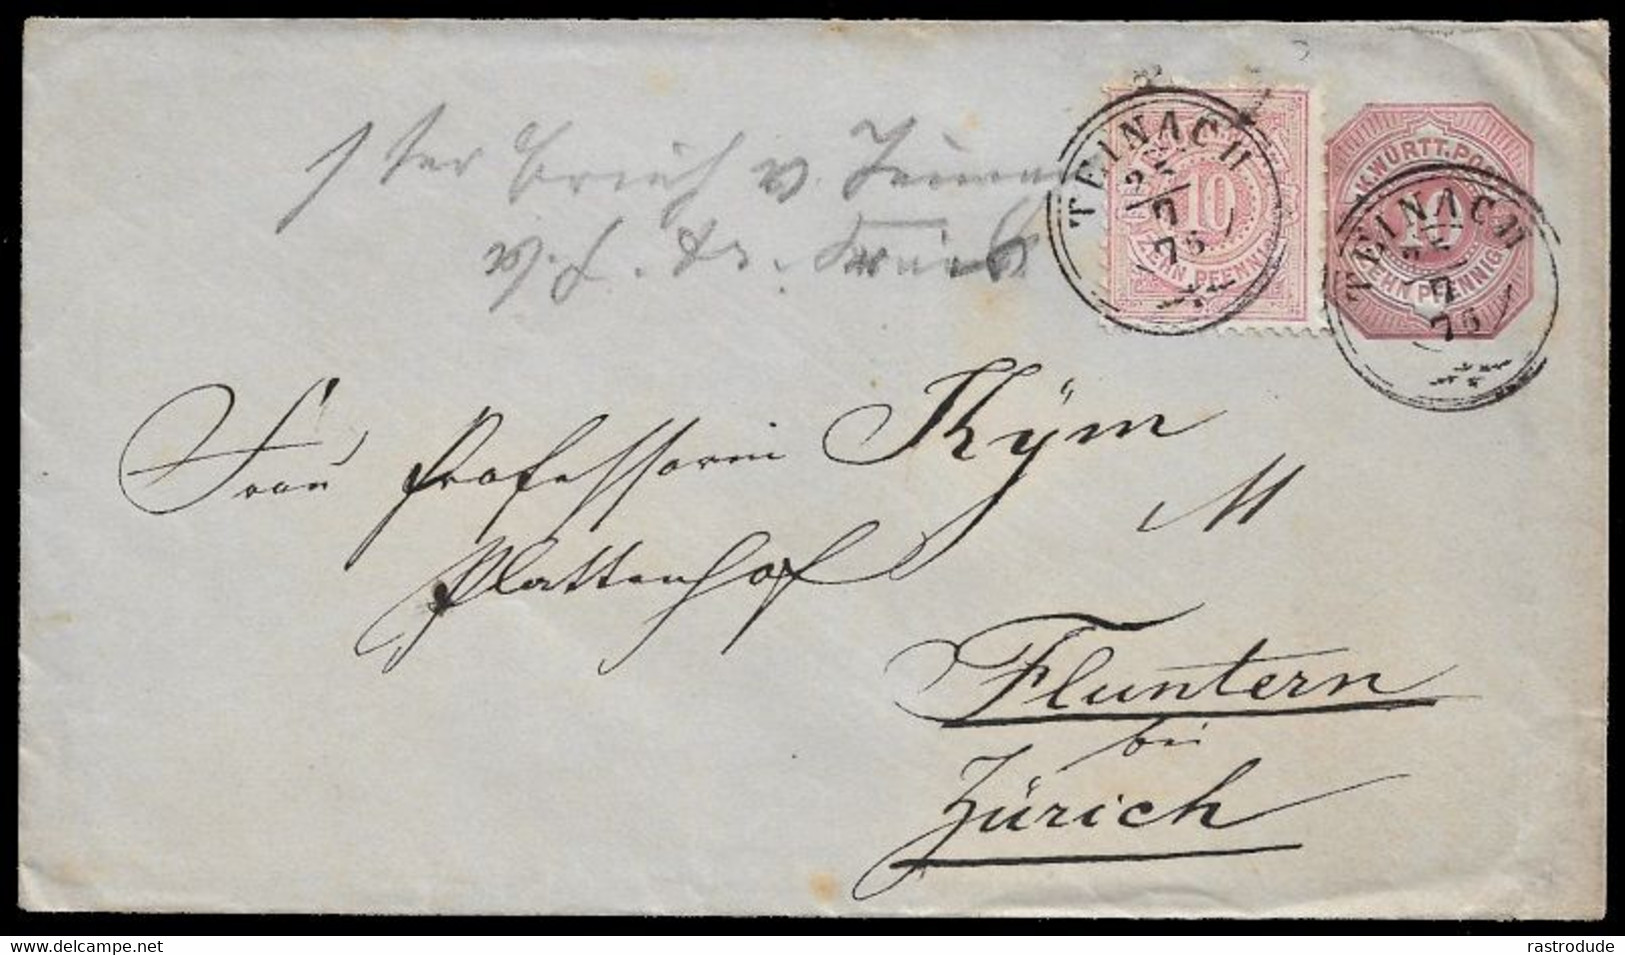 1ter Brief v.
TEINACH
22
7
75
10
ZEHN PFENNIG
K.WÜRTT.POST
TEINACH
22
7
75
10
ZEHN PFENNIG
Frau Professorin Kÿm
Plattenhof
Fluntern
bei
Zürich
www.delcampe.net
rastrodude